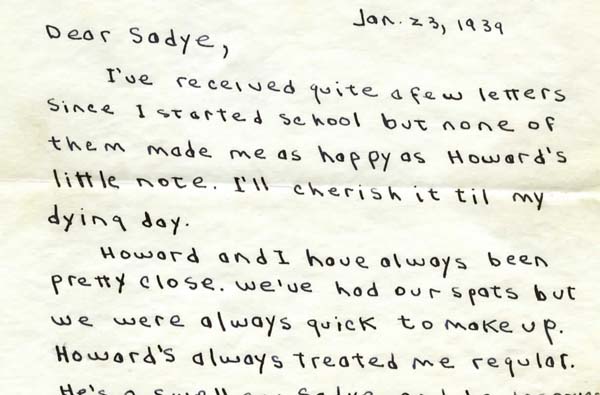 Jan. 23, 1939
Dear Sadye,
I've received quite a few letters
since I started school but none of
them made me as happy as Howard's
little note. I'll cherish it til my
dying day.
Howard and I have always been
pretty close. We've had our spats but
we were always quick to make up.
Howard's always treated me regular.
He's a swell